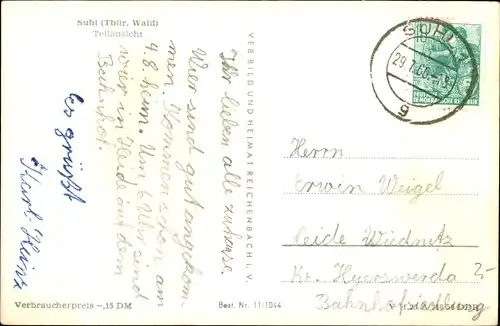 Suhl (Thür. Wald)
Teilansicht
Ihr lieben alle zuhause.
Wier sind gut angekom
men. Kommen schon am
4.8. heim. Um 6 Uhr sind
wier in Heide auf dem
Bahnhof.
Es grüßt
Karl-Heinz
Verbraucherpreis –,15 DM
VEB BILD UND HEIMAT REICHENBACH i. V.
Best. Nr. 11/1044
SUHL 1
29.7.60
g
DEMOKRATISCHE REPUBLIK
Herrn
Erwin Weigel
Heide Wiednitz
Kr. Hyerswerda
Bahnhofsiedlung